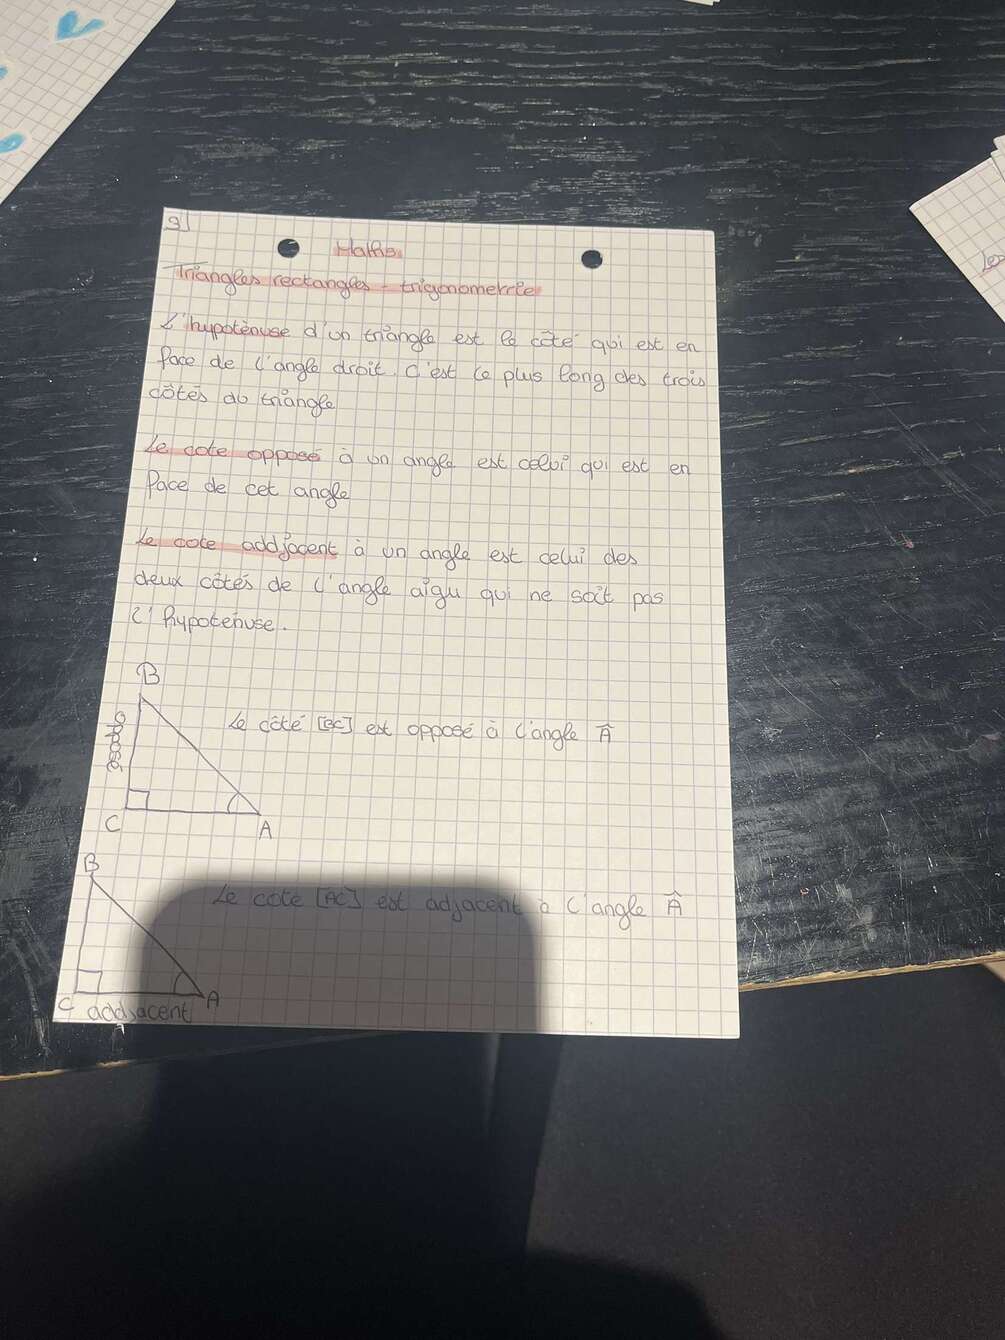 9)
Maths
Triangles rectangles - trigonométrie
L'hypoténuse d'un triangle est le côté qui est en
face de l'angle droit. C'est le plus long des trois
côtés du triangle
Le cote opposé à un angle est celui qui est en
face de cet angle
Le cote addjacent à un angle est celui des
deux côtés de l'angle aigu qui ne soit pas
l'hypoténuse.
B
opposé
Le côté [BC] est opposé à l'angle Â
C
A
B
Le cote [AC] est adjacent à l'angle Â
C
A
addjacent